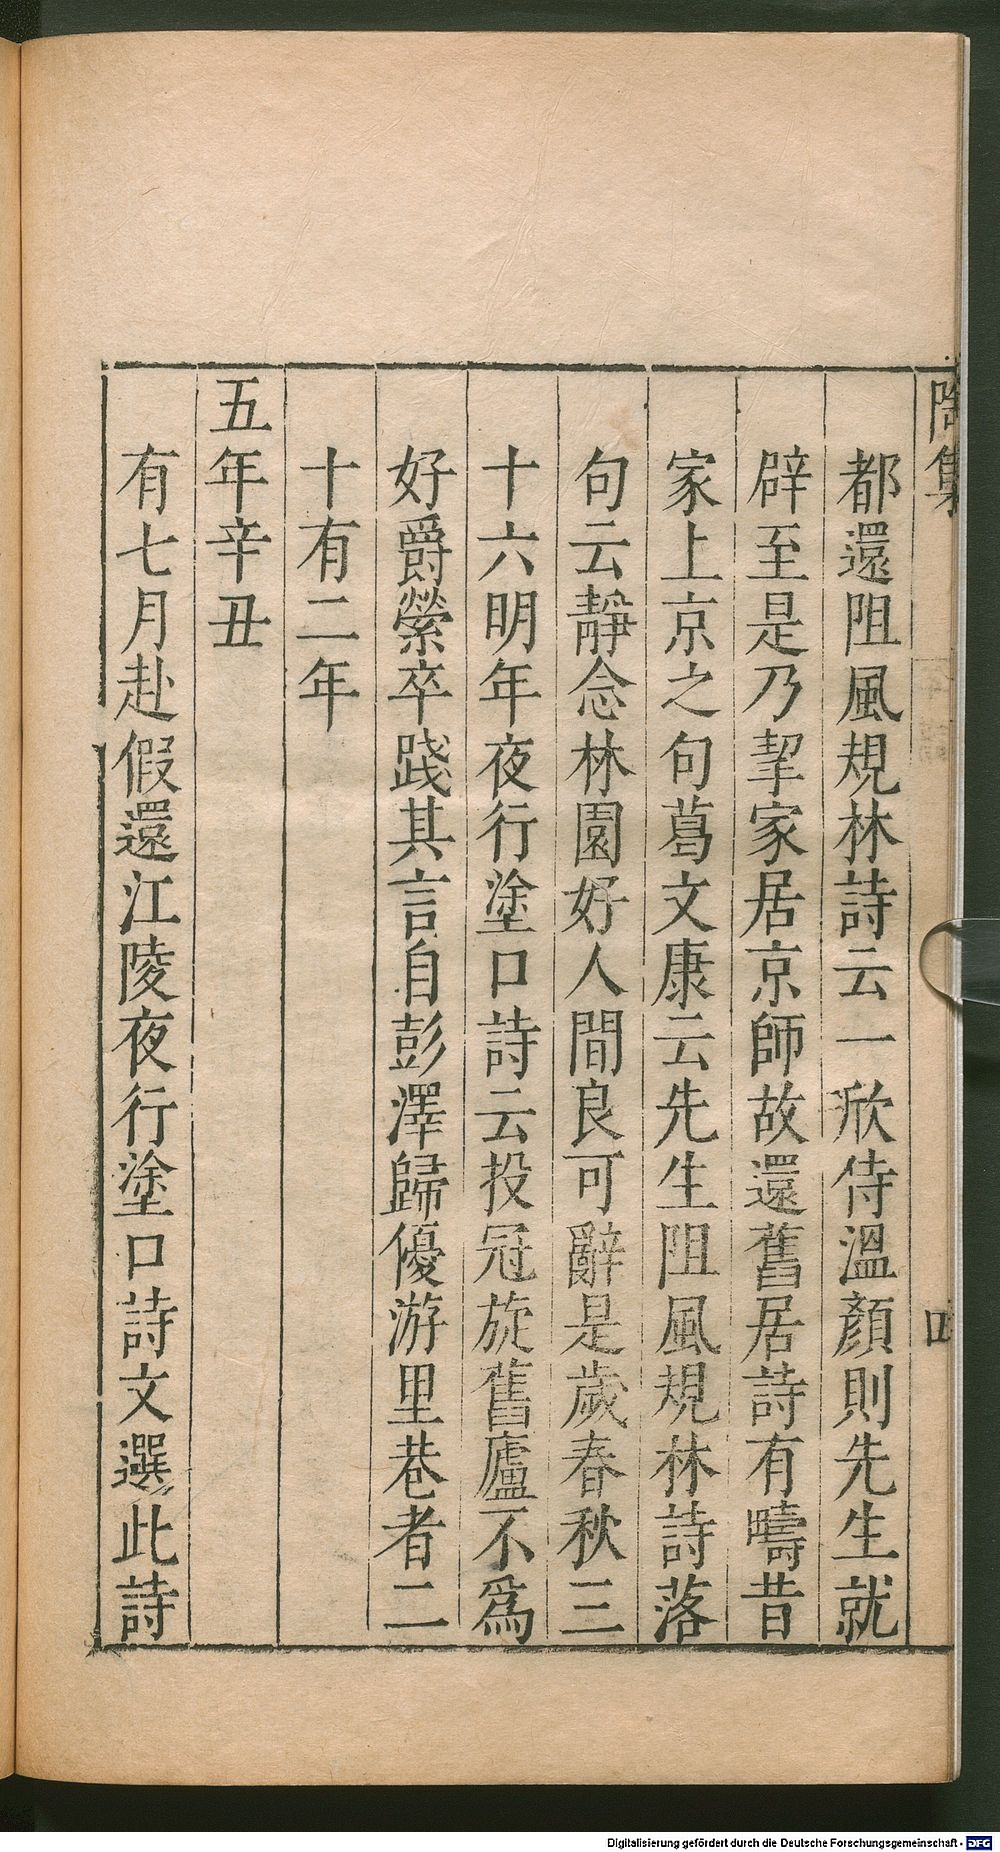 陶集
四
都還阻風規林詩云一欣侍溫顏則先生就
辟至是乃挈家居京師故還舊居詩有疇昔
家上京之句葛文康云先生阻風規林詩落
句云靜念林園好人間良可辭是歲春秋三
十六明年夜行塗口詩云投冠旋舊廬不為
好爵縈卒踐其言自彭澤歸優游里巷者二
十有二年
五年辛丑
有七月赴假還江陵夜行塗口詩文選此詩
Digitalisierung gefördert durch die Deutsche Forschungsgemeinschaft - DFG